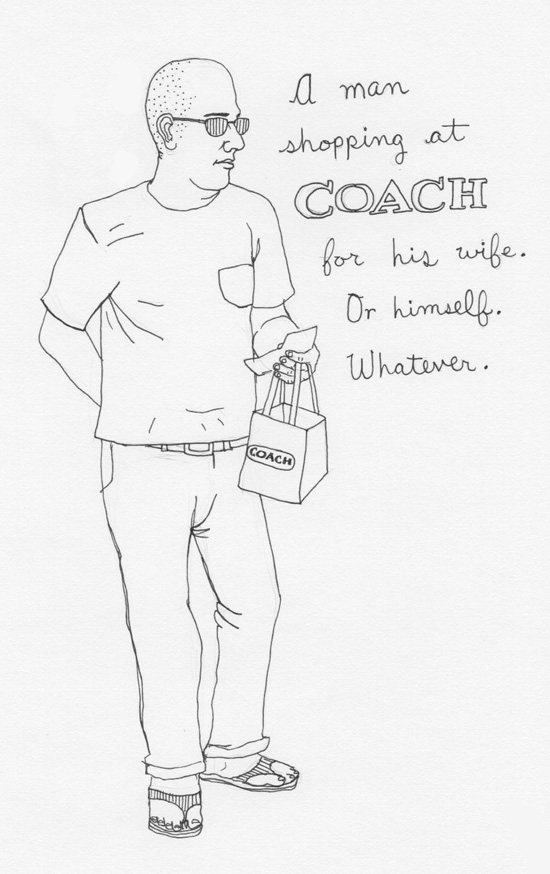 A man
shopping at
COACH
for his wife.
Or himself.
Whatever.
COACH